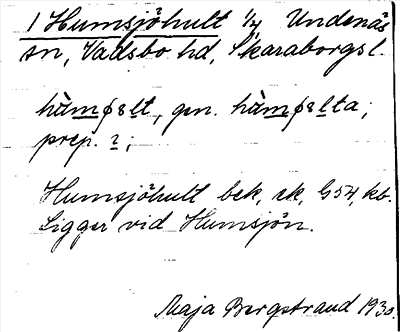 1 Humsjöhult 1/4 Undenäs
sn, Vadsbo hd, Skaraborgs l.
hàmɸɞlt, gen. hàmɸɞlta;
prep. i;
Humsjöhult bek, sk, G54, kb.
Ligger vid Humsjön.
Maja Bergstrand 1930.